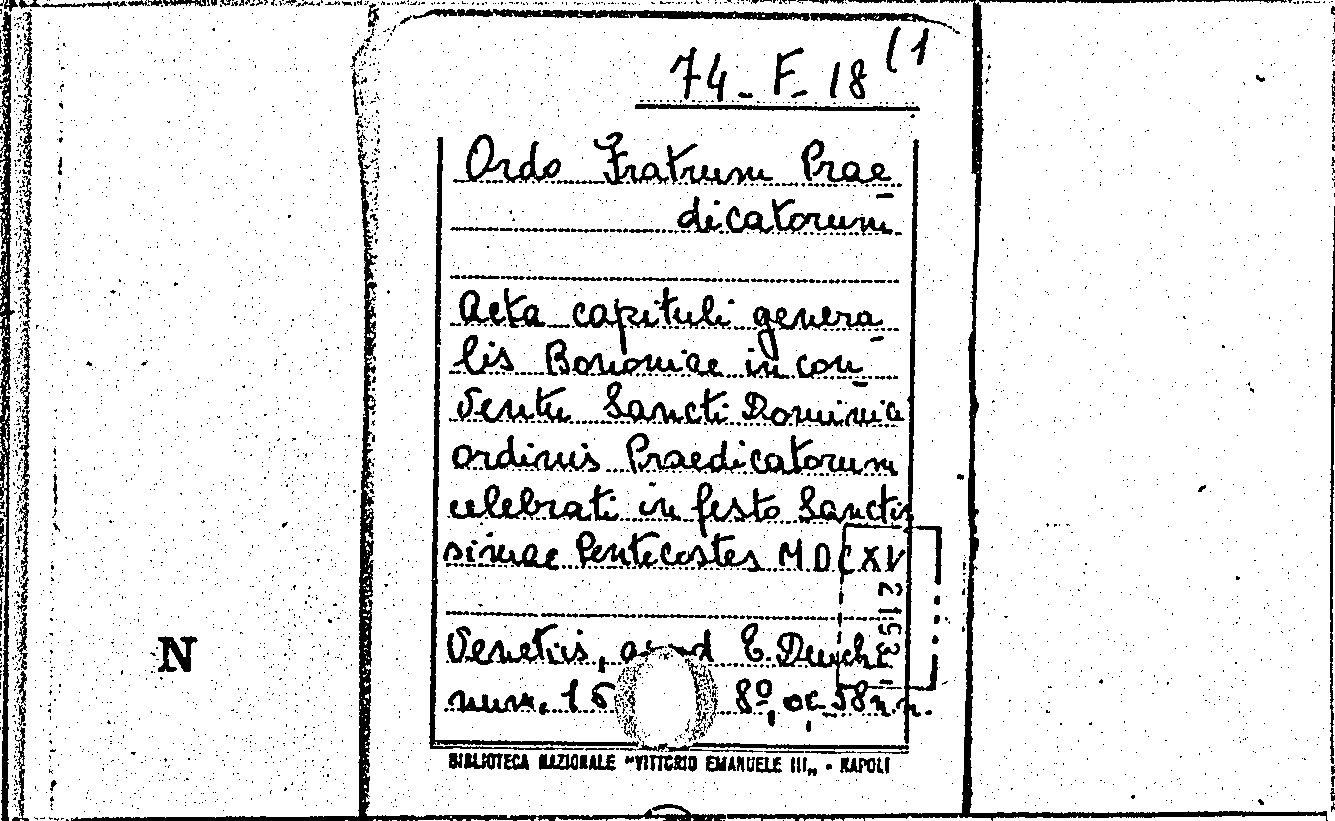 74-F-18 (1
Ordo Fratrum Prae-
dicatorum
Acta capituli genera-
lis Bononiae in con-
ventu Sancti Dominici
ordinis Praedicatorum
celebrati in festo Sanctis
simae Pentecostes MDCXV
Venetiis, E. Deuch
num. 16 8º, pc. 58 n.n.
2153
N
BIBLIOTECA NAZIONALE "VITTORIO EMANUELE III„ - NAPOLI